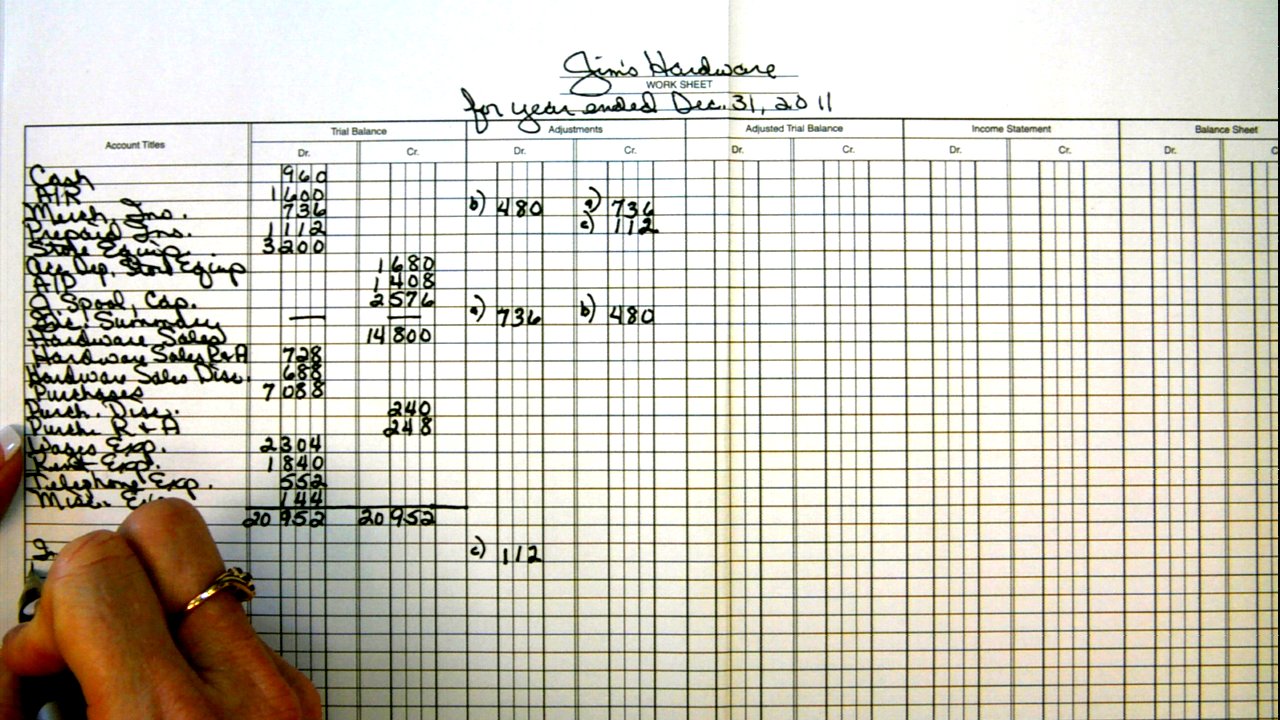 Jim's Hardware
WORK SHEET
for year ended Dec. 31, 2011
Account Titles Trial Balance Adjustments Adjusted Trial Balance Income Statement Balance Sheet
Dr. Cr. Dr. Cr. Dr. Cr. Dr. Cr. Dr. C
Cash 960
A/R 1600
Merch. Inv. 736 b) 480 a) 736
Prepaid Ins. 1112 c) 112
Store Equip. 3200
Acc. Dep. Store Equip 1680
A/P 1408
J. Spool, Cap. 2576
Inc. Summary — — a) 736 b) 480
Hardware Sales 14800
Hardware Sales R+A 728
Hardware Sales Disc. 688
Purchases 7088
Purch. Disc. 240
Purch. R+A 248
Wages Exp. 2304
Rent Exp. 1840
Telephone Exp. 552
Misc. 144
20952 20952
c) 112